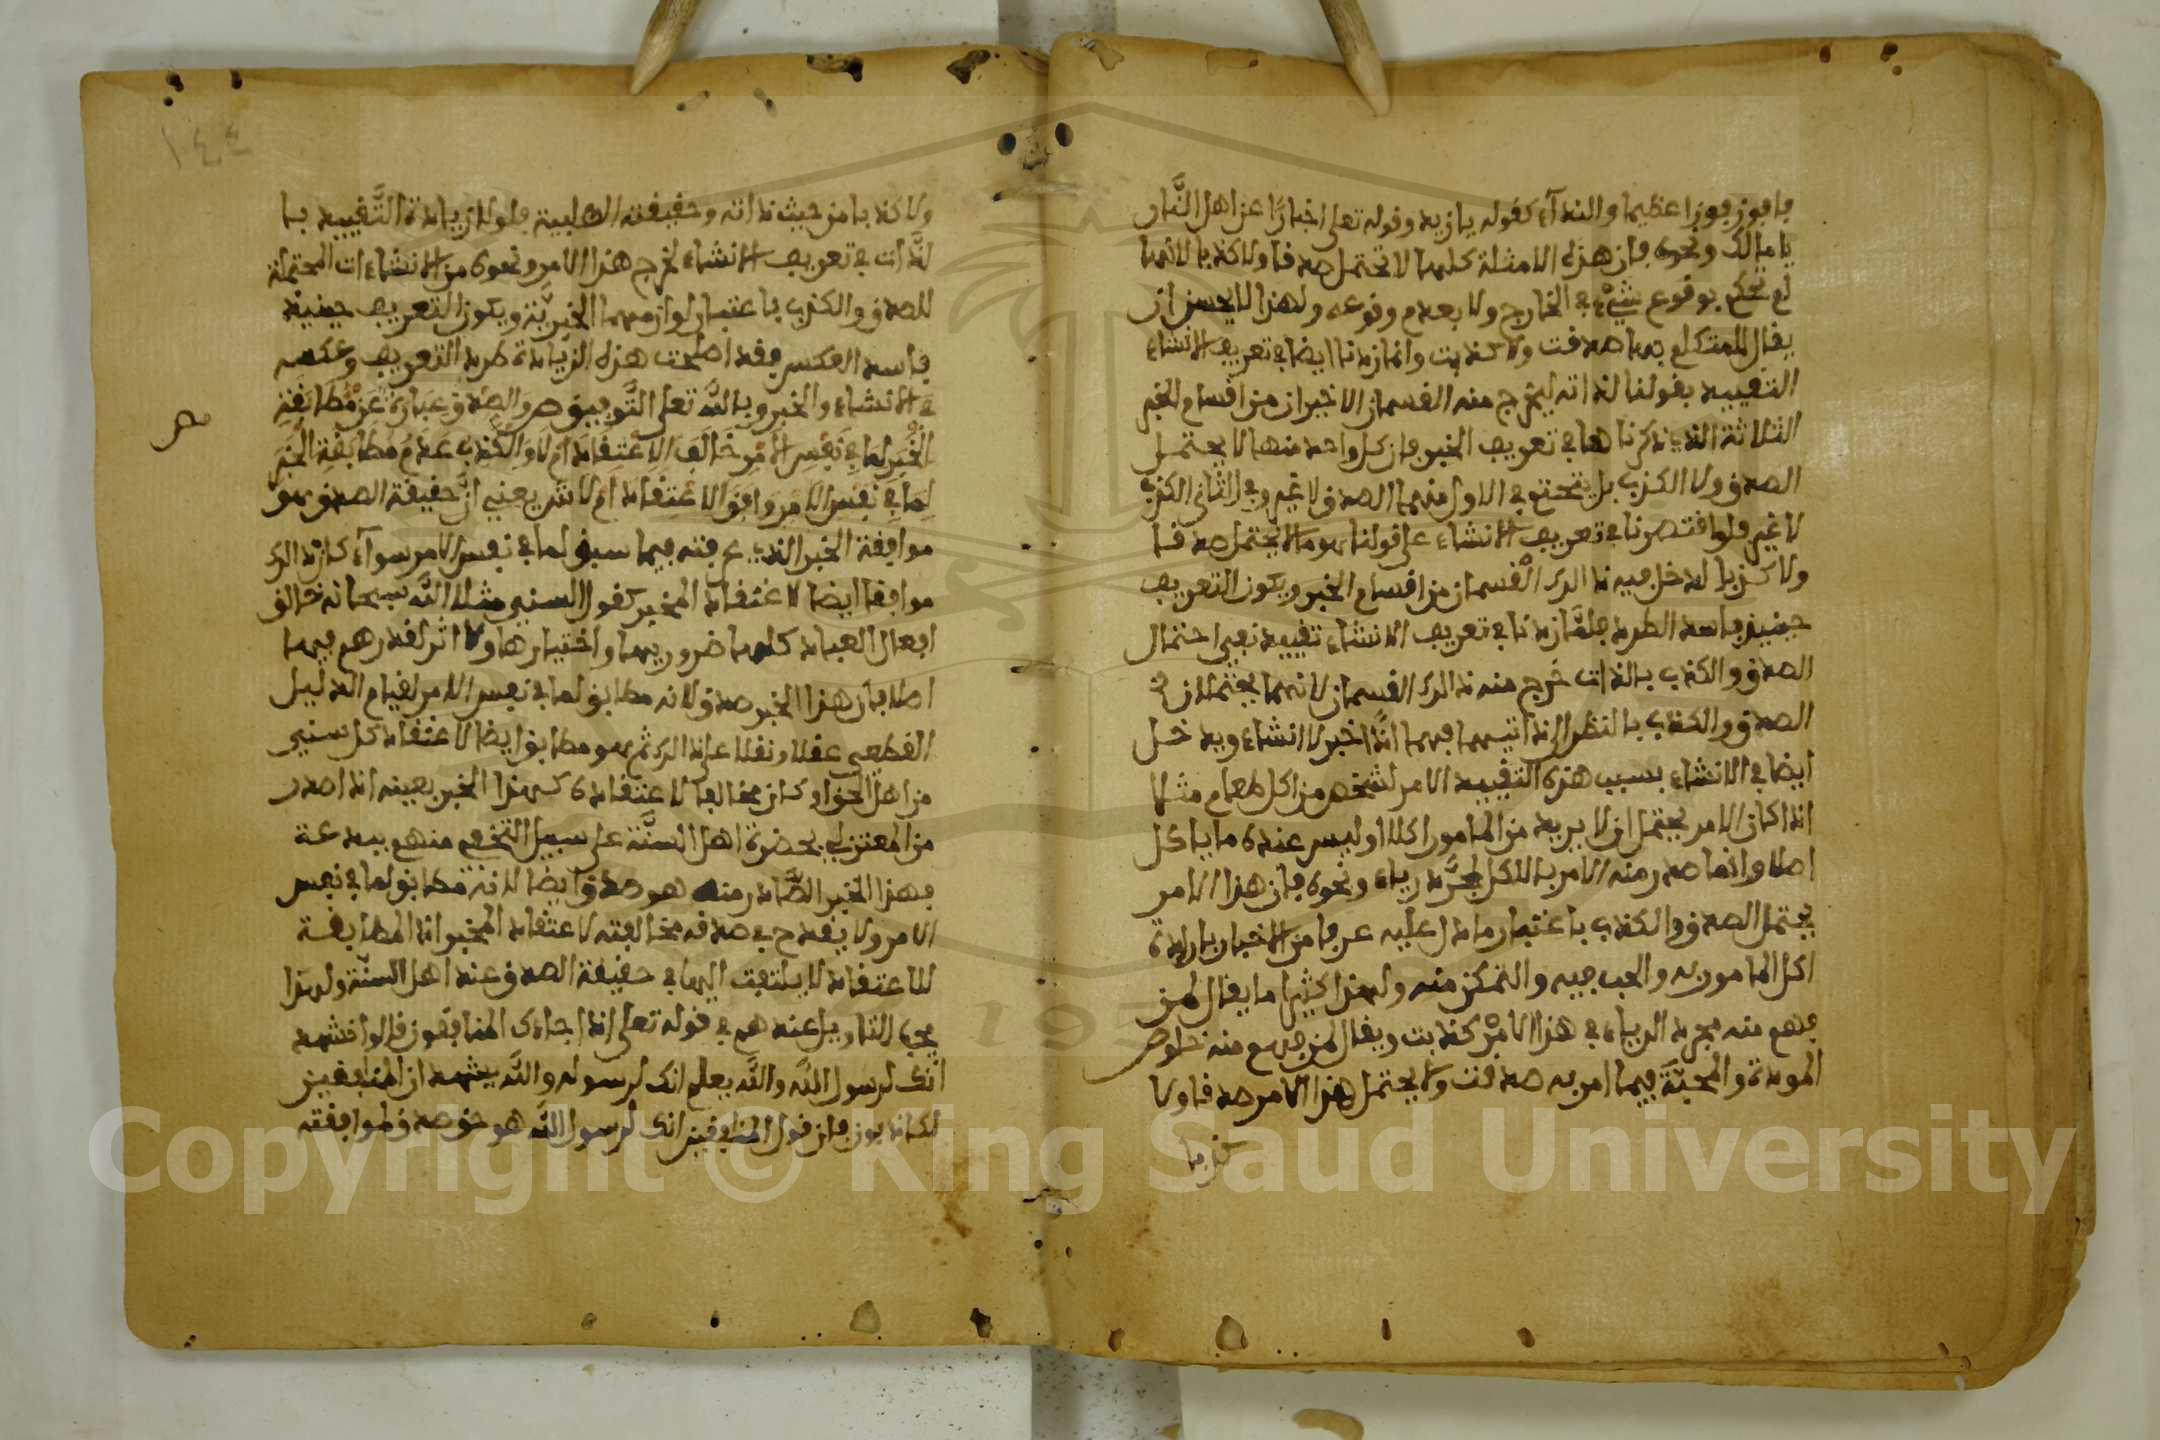 فافوز فوزا عظيما والندآء كقوله يا زيد وقوله تعلى اخبارًا عن اهل النَّار
يا مالك ونحوه فان هذه الامثلة كلها لا تحتمل صدقا ولا كذبا لانها
لم تحكم بوقوع شيْء في الخارج ولا بعدم وقوعه ولهذا لا يحسن ان
يقال للمتكلم بها صدقت ولا كذبت وانما زدنا ايضا في تعريف الانشاء
التقييد بقولنا لذاته ليخرج منه القسمان الاخيران من اقسام الخبر
الثلاثة الذي ذكرناها في تعريف الخبر فان كل واحد منها لا يحتمل
الصدق ولا الكذب بل يتحتم في الاول منهما الصدق لا غير وفي الثاني الكذب
لا غير فلو اقتصرنا في تعريف الانشاء على قولنا هو ما لا يحتمل صدقا
ولا كذبا لدخل فيه ذالك القسمان من اقسام الخبر ويكون التعريف
حينئذ فاسد الطرد فلمَّا زدنا في تعريف الانشاء تقييد نفي احتمال
الصدق والكذب بالذات خرج منه ذالك القسمان لانهما يحتملان
الصدق والكذب بالنظر الى ذاتيهما فهما اذًا خبر لا انشاء ويدخل
ايضا في الانشاء بسبب هذه التقييد الامر لشخص من اكل طعام مثلا
اذا كان الامر يحتمل ان لا يريد من المامور اكلا او ليس عنده ما ياكل
اصلا وانما صدر منه الامر بالاكل لمجرَّد رياء ونحوه فان هذا الامر
يحتمل الصدق والكذب باعتبار ما دل عليه عرفا من الاخبار بارادة
اكل المامور به والحب فيه والتمكن منه ولهذا كثيرا ما يقال لمن
فهم منه مجرد الرياء في هذا الامْر كذبت ويقال لمن فهم منه خلوص
المودة والمحبَّة فيما امر به صدقت ولا يحتمل هذا الامر صدقا ولا
كذبا
١٤٤
ولا كذبا من حيث ذاته وحقيقته الطلبية فلولا زيادة التَّقييد با
لذَّات في تعريف الانشاء لخرج هذا الامر ونحوه من الانشاءات المحتملة
للصدق والكذب باعتبار لوازمها الخبريَّة ويكون التعريف حينئذ
فاسد العكس فقد اصلحت هذه الزيادة طرد التعريف وعكسه
في الانشاء والخبر وبالله تعلى التَّوفيق ص والصِّدق عبارة عن مطابقة
الخبر لما في نفس الامر خالف الاعتقاد ام لا والكذب عدم مطابقة الخبر
لما في نفس الامر وافق الاعتقاد ام لا ش يعني انَّ حقيقة الصدق هو
موافقة الخبر الذي عرفته فيما سبق لما في نفس الامر سوآء كان ذالك
موافقا ايضا لاعتقاد المخبر كقول السني مثلا اللَّه سبحانه خالق
افعال العباد كلها ضروريها واختيارها ولا اثر لقدرهم فيها
اصلا فان هذا الخبر صدق لانه مطابق لما في نفس الامر لقيام الدليل
القطعي عقلا ونقلا على ذالك ثم هو مطابق ايضا لاعتقاد كل سني
من اهل الحق او كان مخالفا لاعتقاده كهذا الخبر بعينه اذا صدر
من المعتزلي بحضرة اهل السنَّة على سبيل التخفي منهم ببدعة
فهذا الخبر الصَّادر منه هو صدق ايضا لانه مطابق لما في نفس
الامر ولا يقدح في صدقه مخالفته لاعتقاد المخبر اذا المطابقة
للاعتقاد لا يلتفت اليها في حقيقة الصدق عند اهل السنَّة ولهذا
يجب التاويل عندهم في قوله تعلى اذا جاءك المنافقون قالوا نشهد
انك لرسول الله واللَّه يعلم انك لرسوله واللَّه يشهد ان المنافقين
لكاذبون فان قول المنافقين انك لرسول الله هو خبر صدق لموافقته